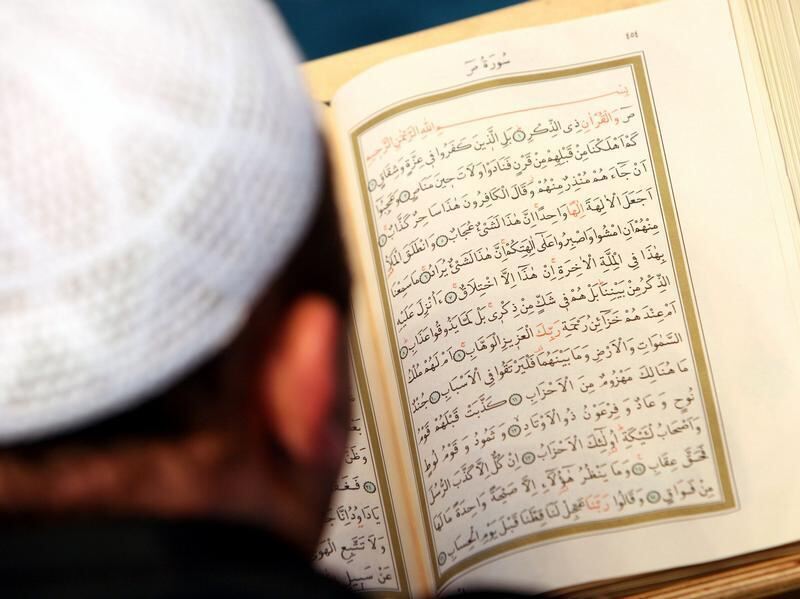 ٤٥٤
سُورَةُ صٓ
بِسْمِ اللّٰهِ الرَّحْمٰنِ الرَّحِيمِ
صٓ وَالْقُرْاٰنِ ذِى الذِّكْرِ ۝١ بَلِ الَّذِينَ كَفَرُوا فِى عِزَّةٍ وَشِقَاقٍ ۝٢
كَمْ اَهْلَكْنَا مِنْ قَبْلِهِمْ مِنْ قَرْنٍ فَنَادَوْا وَلَاتَ حِينَ مَنَاصٍ ۝٣ وَعَجِبُوا
اَنْ جَٓاءَهُمْ مُنْذِرٌ مِنْهُمْ وَقَالَ الْكَافِرُونَ هٰذَا سَاحِرٌ كَذَّابٌ ۝٤
اَجَعَلَ الْاٰلِهَةَ اِلٰهًا وَاحِدًا اِنَّ هٰذَا لَشَىْءٌ عُجَابٌ ۝٥ وَانْطَلَقَ الْمَلَاُ
مِنْهُمْ اَنِ امْشُوا وَاصْبِرُوا عَلٰٓى اٰلِهَتِكُمْ اِنَّ هٰذَا لَشَىْءٌ يُرَادُ ۝٦ مَا سَمِعْنَا
بِهٰذَا فِى الْمِلَّةِ الْاٰخِرَةِ اِنْ هٰذَٓا اِلَّا اخْتِلَاقٌ ۝٧ ءَاُنْزِلَ عَلَيْهِ
الذِّكْرُ مِنْ بَيْنِنَا بَلْ هُمْ فِى شَكٍّ مِنْ ذِكْرِى بَلْ لَمَّا يَذُوقُوا عَذَابِ ۝٨
اَمْ عِنْدَهُمْ خَزَٓائِنُ رَحْمَةِ رَبِّكَ الْعَزِيزِ الْوَهَّابِ ۝٩ اَمْ لَهُمْ مُلْكُ
السَّمٰوَاتِ وَالْاَرْضِ وَمَا بَيْنَهُمَا فَلْيَرْتَقُوا فِى الْاَسْبَابِ ۝١٠ جُنْدٌ
مَا هُنَالِكَ مَهْزُومٌ مِنَ الْاَحْزَابِ ۝١١ كَذَّبَتْ قَبْلَهُمْ قَوْمُ
نُوحٍ وَعَادٌ وَفِرْعَوْنُ ذُو الْاَوْتَادِ ۝١٢ وَثَمُودُ وَقَوْمُ لُوطٍ
وَاَصْحَابُ لْـَٔيْكَةِ اُولٰٓئِكَ الْاَحْزَابُ ۝١٣ اِنْ كُلٌّ اِلَّا كَذَّبَ الرُّسُلَ
فَحَقَّ عِقَابِ ۝١٤ وَمَا يَنْظُرُ هٰٓؤُلَٓاءِ اِلَّا صَيْحَةً وَاحِدَةً مَا لَهَا
مِنْ فَوَاقٍ ۝١٥ وَقَالُوا رَبَّنَا عَجِّلْ لَنَا قِطَّنَا قَبْلَ يَوْمِ الْحِسَابِ ۝١٦
وَظَنَّ
يَا دَاوُدُ اِنَّا
وَلَا تَتَّبِعِ الْهَوٰى
عَنْ سَبِيلِ